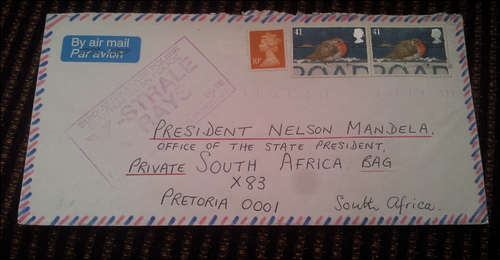 By air mail
Par avion
STRALE
PAYS
10P
41
41
ROAD
ROAD
PRESIDENT NELSON MANDELA,
OFFICE OF THE STATE PRESIDENT,
PRIVATE SOUTH AFRICA BAG
X83
PRETORIA 0001
South Africa.